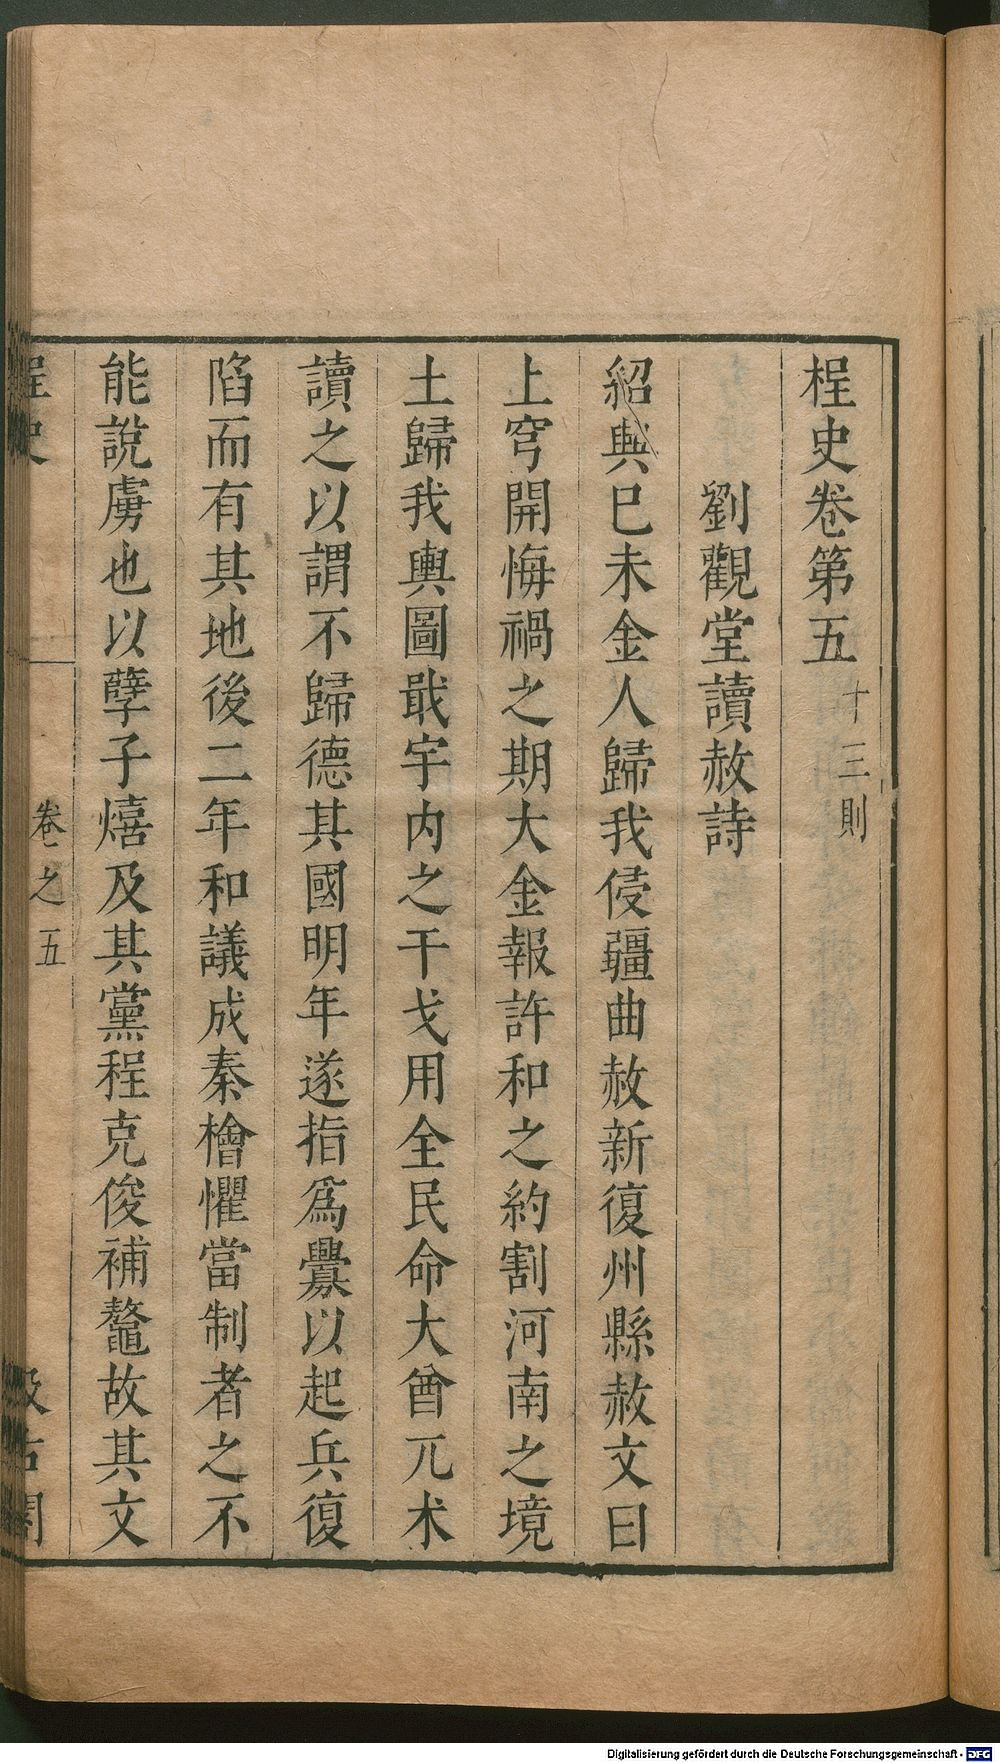 桯史卷第五 十三則
劉觀堂讀赦詩
紹興巳未金人歸我侵疆曲赦新復州縣赦文曰
上穹開悔禍之期大金報許和之約割河南之境
土歸我輿圖戢宇内之干戈用全民命大酋兀术
讀之以謂不歸德其國明年遂指爲釁以起兵復
陷而有其地後二年和議成秦檜懼當制者之不
能說虜也以孽子熺及其黨程克俊補鼇故其文
桯史 卷之五 古閣
Digitalisierung gefördert durch die Deutsche Forschungsgemeinschaft - DFG